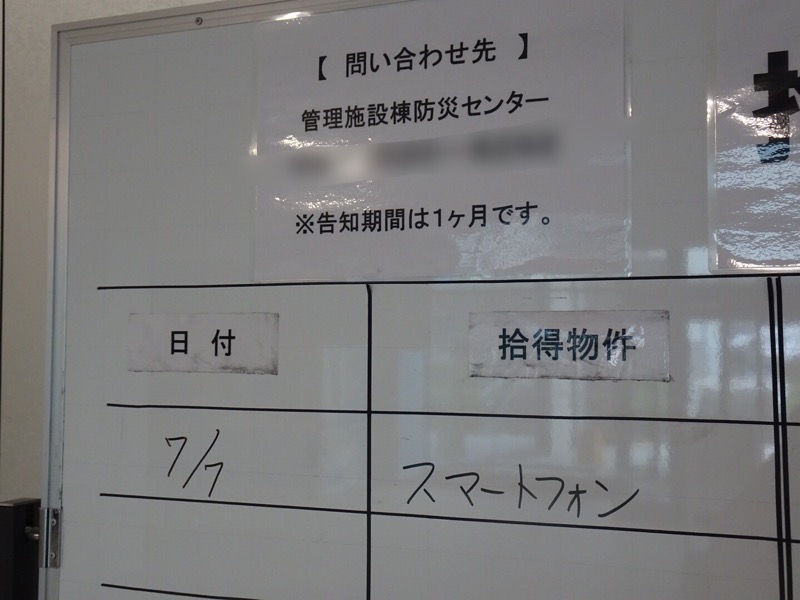 【 問い合わせ先 】
管理施設棟防災センター
※告知期間は1ヶ月です。
日付
拾得物件
7/7
スマートフォン